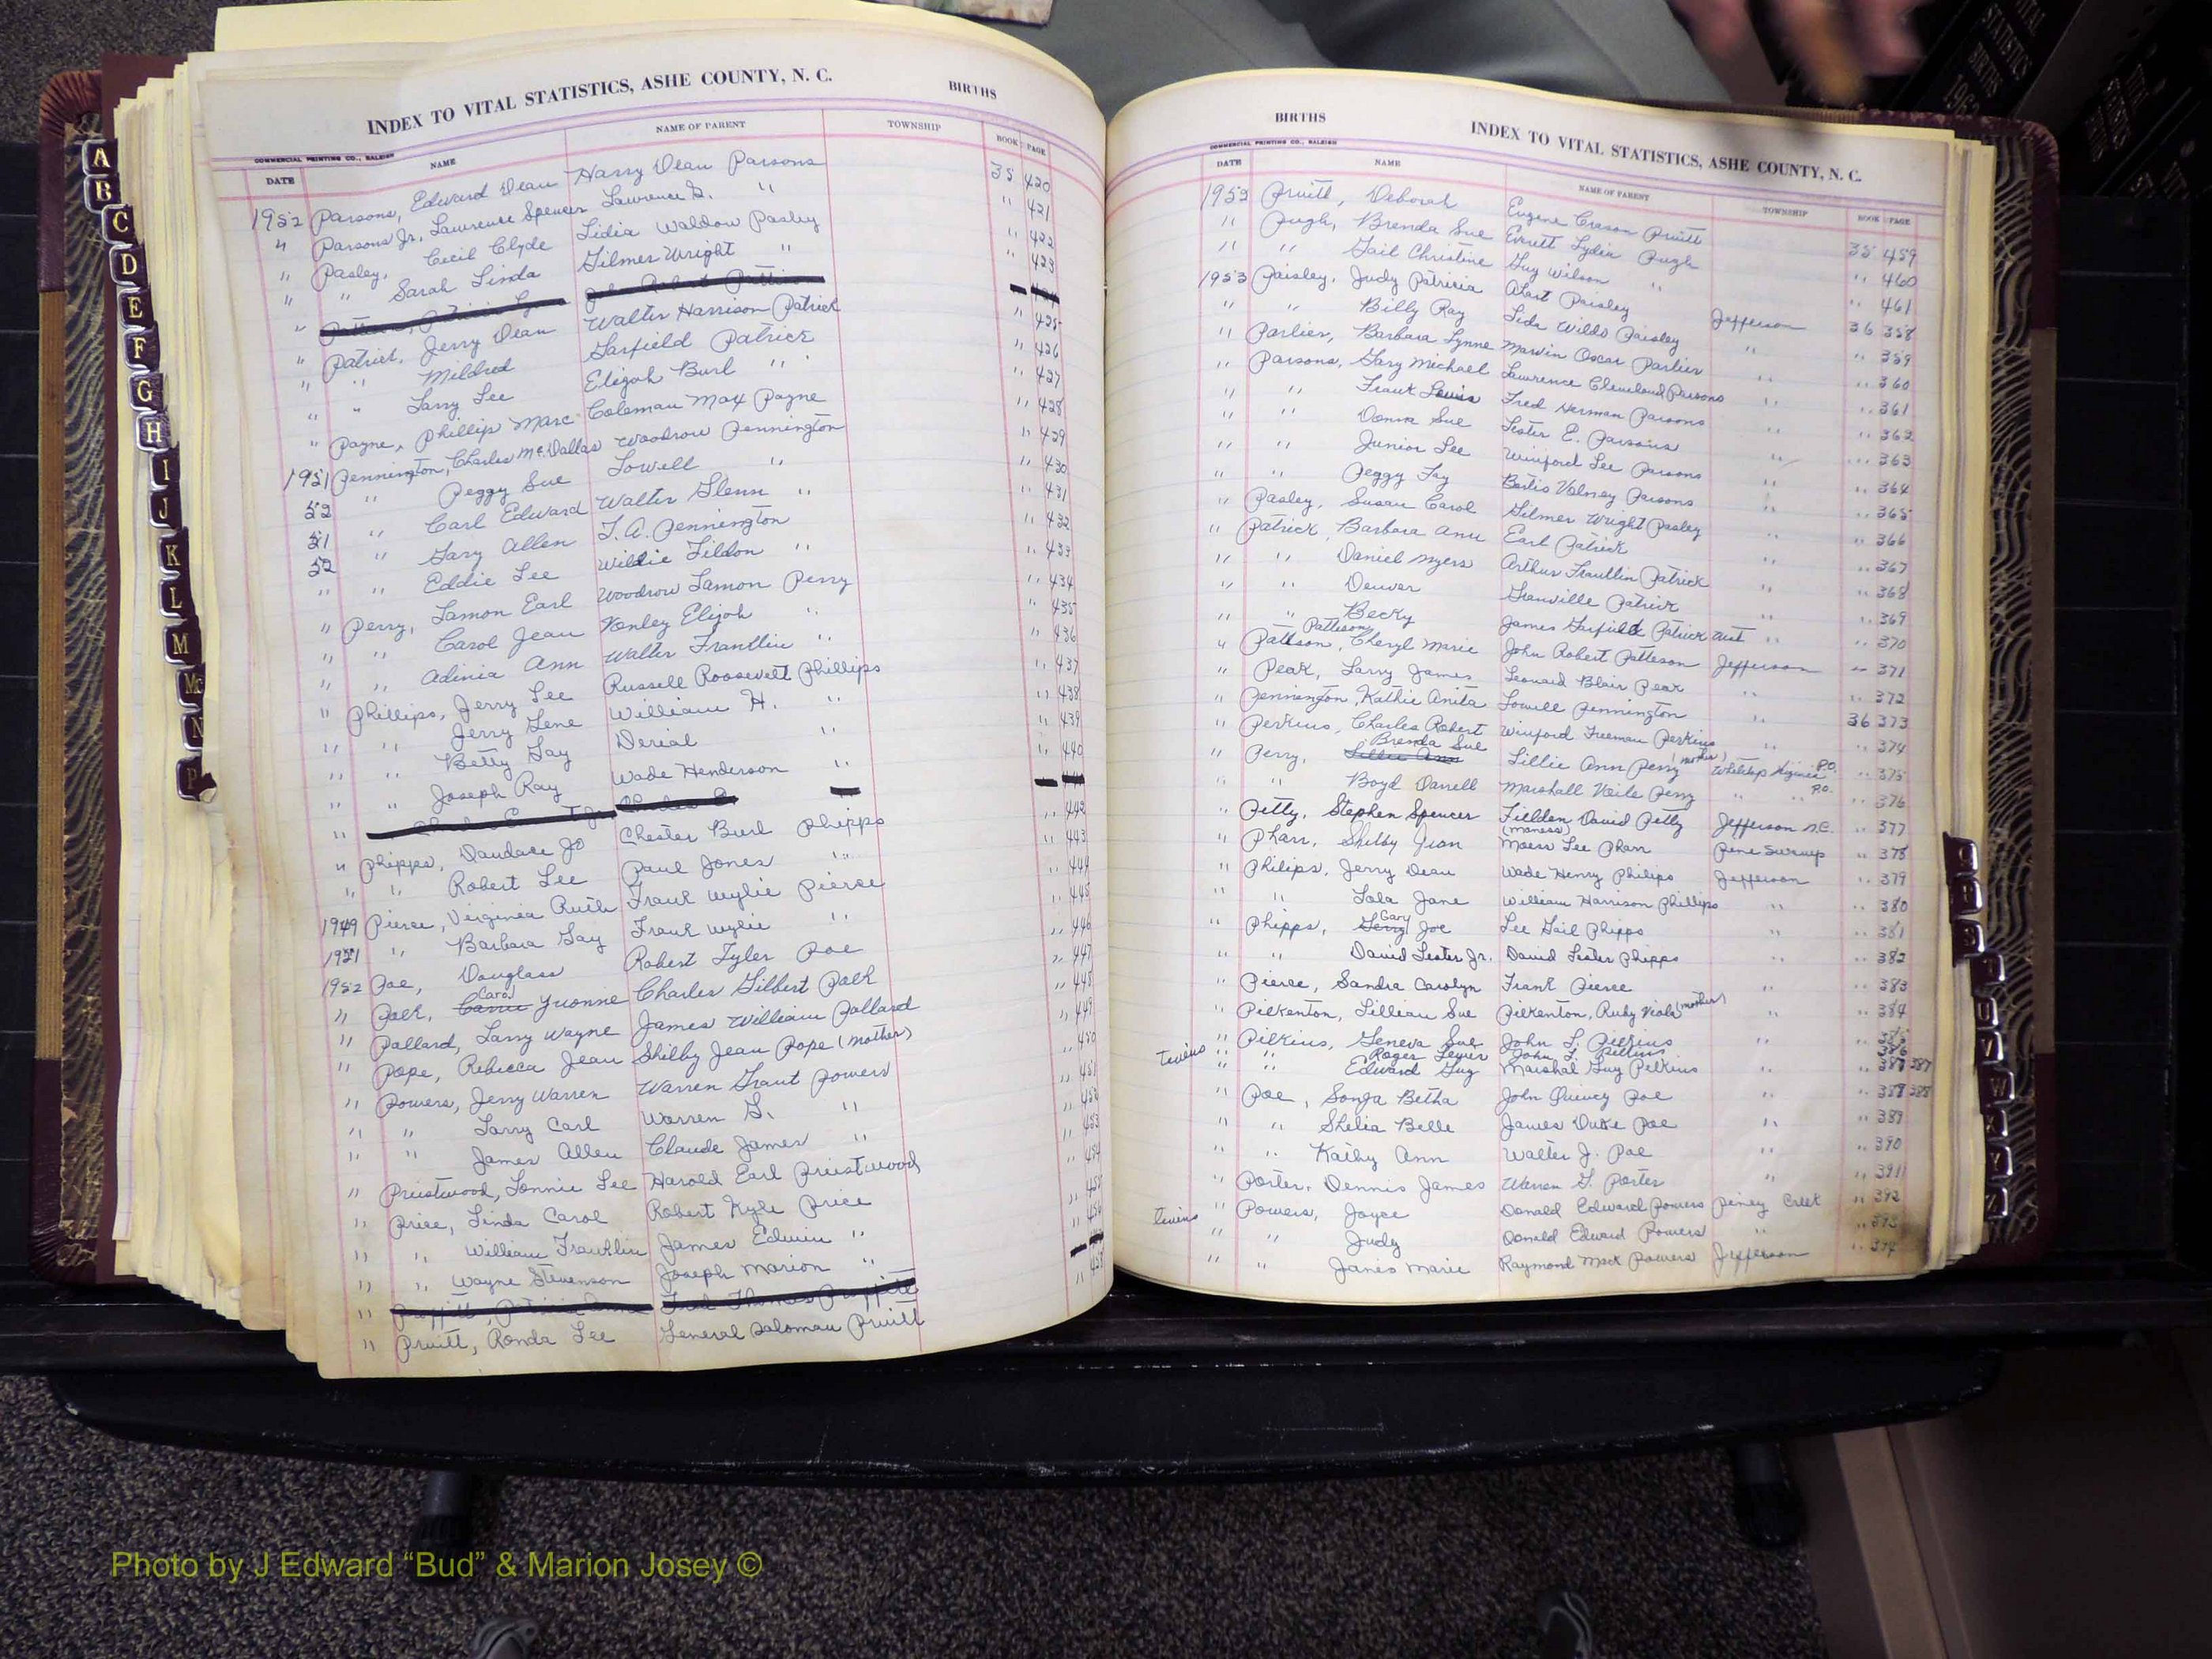 INDEX TO VITAL STATISTICS, ASHE COUNTY, N. C. BIRTHS
COMMERCIAL PRINTING CO., RALEIGH
DATE NAME NAME OF PARENT TOWNSHIP BOOK PAGE
1952 Parsons, Edward Dean Harry Dean Parsons 35 420
" Parsons Jr., Lawrence Spencer Lawrence S. " " 421
" Pasley, Cecil Clyde Lidia Waldow Pasley " 422
" " Sarah Linda Gilmer Wright " " 423
"
" Patrick, Jerry Dean Walter Harrison Patrick " 425
" " Mildred Garfield Patrick " 426
" " Larry Lee Elijah Burl " " 427
" Payne, Phillip Marc Coleman Max Payne " 428
1951 Pennington, Charles McDallas Woodrow Pennington " 429
52 " Peggy Sue Lowell " " 430
51 " Carl Edward Walter Glenn " " 431
52 " Gary Allen T.A. Pennington " 432
" " Eddie Lee Willie Tildon " " 433
" Perry, Lamon Earl Woodrow Lamon Perry " 434
" " Carol Jean Kenley Elijah " " 435
" " Adinia Ann Walter Franklin " " 436
" Phillips, Jerry Lee Russell Roosevelt Phillips " 437
" " Jerry Gene William H. " " 438
" " Betty Gay Derial " " 439
" " Joseph Ray Wade Henderson " " 440
"
" Phipps, Dandace Jo Chester Burl Phipps " 442
" " Robert Lee Paul Jones " " 443
1949 Pierce, Virginia Ruth Frank Wylie Pierce " 444
1951 " Barbara Gay Frank Wylie " " 445
1952 Poe, Douglass Robert Tyler Poe " 446
" Polk, Carol Yvonne Charles Gilbert Polk " 447
" Pollard, Larry Wayne James William Pollard " 448
" Pope, Rebecca Jean Shilby Jean Pope (mother) " 449
" Powers, Jerry Warren Warren Grant Powers " 450
" " Larry Carl Warren G. " " 451
" " James Allen Claude James " " 452
" Priestwood, Lonnie Lee Harold Earl Priestwood " 453
" Price, Linda Carol Robert Kyle Price " 454
" " William Franklin James Edwin " "
" " Wayne Stevenson Joseph Marion " " 456
" Proffitt, Patricia Anne Fred Thomas Proffitt
" Pruitt, Ronda Lee General Salomau Pruitt " 458
BIRTHS INDEX TO VITAL STATISTICS, ASHE COUNTY, N. C.
COMMERCIAL PRINTING CO., RALEIGH
DATE NAME NAME OF PARENT TOWNSHIP BOOK PAGE
1952 Pruitt, Deborah Eugene Creason Pruitt 35 459
" Pugh, Brenda Sue Everett Lydia Pugh " 460
" " Gail Christine Guy Wilson " " 461
1953 Paisley, Judy Patricia Paisley Jefferson 36 358
" " Billy Ray Lida Wildo Paisley " " 359
" Parlier, Barbara Lynne Marvin Oscar Parlier " 360
" Parsons, Gary Michael Lawrence Cleveland Parsons " " 361
" " Frank Lewis Fred Herman Parsons " " 362
" " Donna Sue Lester E. Parsons " " 363
" " Junior Lee Winiford Lee Parsons " " 364
" " Peggy Fay Volney Parsons " " 365
" Pasley, Susan Carol Gilmer Wright Pasley " " 366
" Patrick, Barbara Ann Earl Patrick " " 367
" " Daniel Myers Arthur Franklin Patrick " " 368
" " Denver Granville Patrick " " 369
" " Becky James Garfield Patrick " " 370
" Patteson, Pattison Cheryl Marie John Robert Patteson Jefferson " 371
" Peak, Larry James Leonard Blair Peak " " 372
" Pennington, Kathie Anita Lowell Pennington " 36 373
" Perkins, Charles Robert Winford Freeman Perkins " " 374
" Perry, Brenda Sue Lillie Ann Lillie Ann Perry (mother) Virginia P.O. " 375
" " Boyd Darrell Marshall Perry " " P.O. " 376
" Petty, Stephen Spencer Fielden David Petty Jefferson N.C. " 377
" Pharr, Shelby Jean (maness) Lee Pharr Pine Swamp " 378
" Philips, Jerry Dean Wade Henry Philips Jefferson " 379
" " Lola Jane William Harrison Phillips " " 380
" Phipps, Gary Joe Lee Gail Phipps " " 381
" " David Lester Jr. David Lester Phipps " " 382
" Pierce, Sandra Carolyn Frank Pierce " " 383
" Pilkenton, Lillian Sue Pilkenton, Ruby Viola (mother) " " 384
" Pilkins, Geneva Sue John L. Pilkins " " 385
twins " " Roger John L. Pilkins 386
" " Edward Guy Marshal Guy Pilkins " " 387
" Poe, Sonja Betha John Quincy Poe " " 388
" " Shelia Belle James Duke Poe " " 389
" " Kathy Ann Walter J. Poe " " 390
" Porter, Dennis James Warren G. Porter " " 391
" Powers, Joyce Donald Edward Powers Piney Creek " 392
twins " " Judy Donald Edward Powers " " 393
" " Janes Marie Raymond Mack Powers Jefferson " 394
A
B
C
D
E
F
G
H
I
J
K
L
M
Mc
N
P
U
V
W
X
Y
Z
Photo by J Edward “Bud” & Marion Josey ©